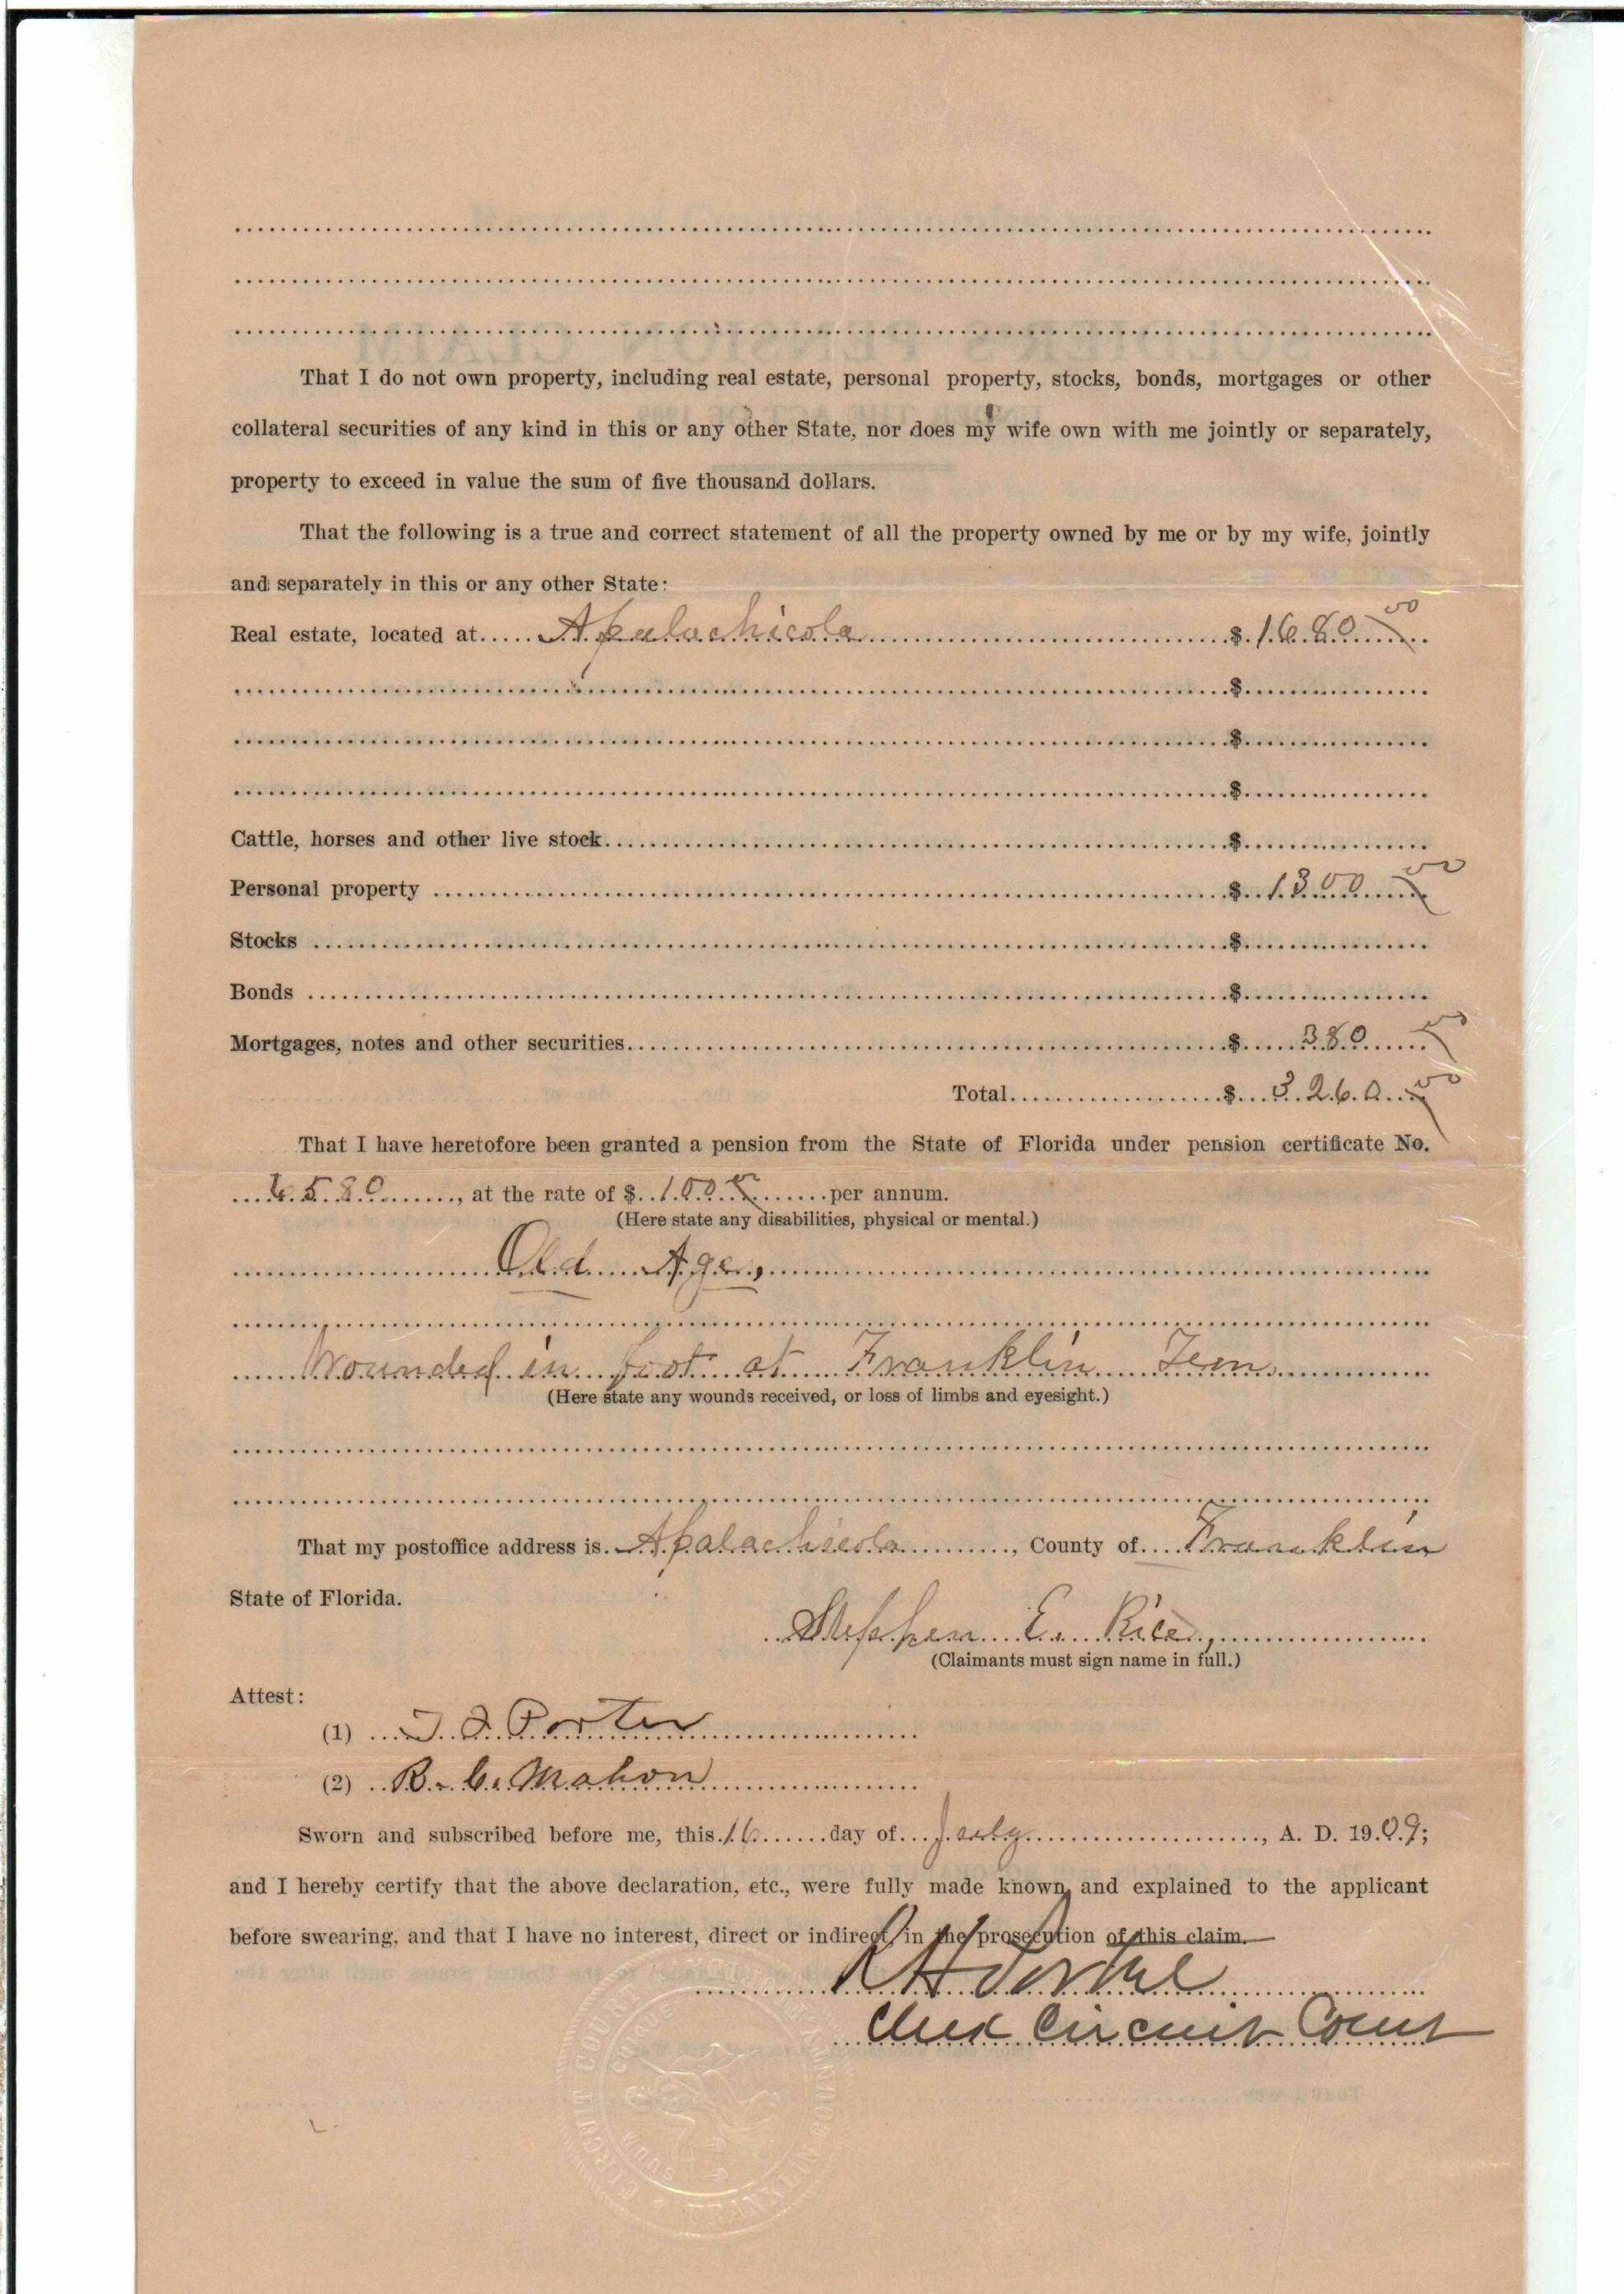 That I do not own property, including real estate, personal property, stocks, bonds, mortgages or other
collateral securities of any kind in this or any other State, nor does my wife own with me jointly or separately,
property to exceed in value the sum of five thousand dollars.
That the following is a true and correct statement of all the property owned by me or by my wife, jointly
and separately in this or any other State:
Real estate, located at Apalachicola $ 1680 00
$
$
$
Cattle, horses and other live stock $
Personal property $ 1300 00
Stocks $
Bonds $
Mortgages, notes and other securities $ 380 00
Total $ 3260 00
That I have heretofore been granted a pension from the State of Florida under pension certificate No.
6580, at the rate of $ 100 per annum.
(Here state any disabilities, physical or mental.)
Old Age,
Wounded in foot at Franklin Tenn
(Here state any wounds received, or loss of limbs and eyesight.)
That my postoffice address is Apalachicola, County of Franklin
State of Florida.
Stephen E. Rice,
(Claimants must sign name in full.)
Attest:
(1) Porter
(2) R. C. Mahon
Sworn and subscribed before me, this 16 day of July, A. D. 1909;
and I hereby certify that the above declaration, etc., were fully made known and explained to the applicant
before swearing, and that I have no interest, direct or indirect, in the prosecution of this claim.
R H Porter
Clerk Circuit Court
CIRCUIT COURT
FRANKLIN COUNTY